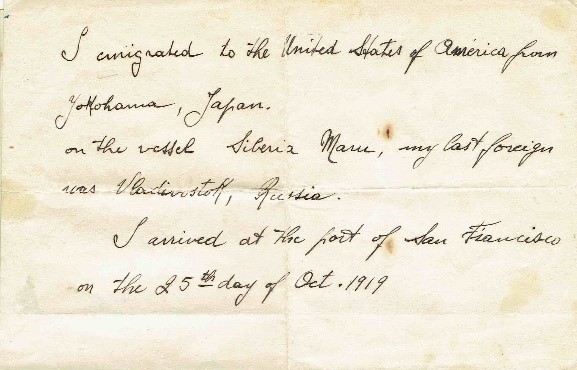 I emigrated to the United States of America from
Yokohama, Japan.
on the vessel Siberia Maru, my last foreign
was Vladivostok, Russia.
I arrived at the port of San Francisco
on the 25th day of Oct. 1919